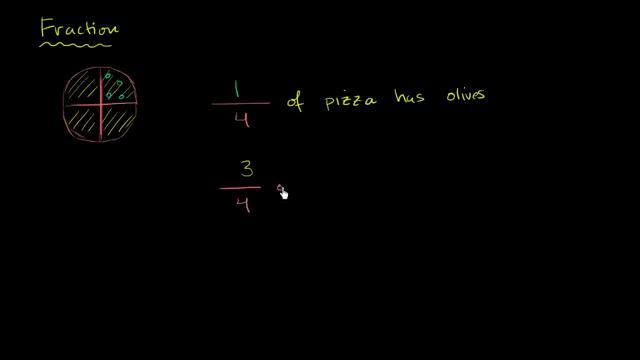 Fraction
1/4 of pizza has olives
3/4